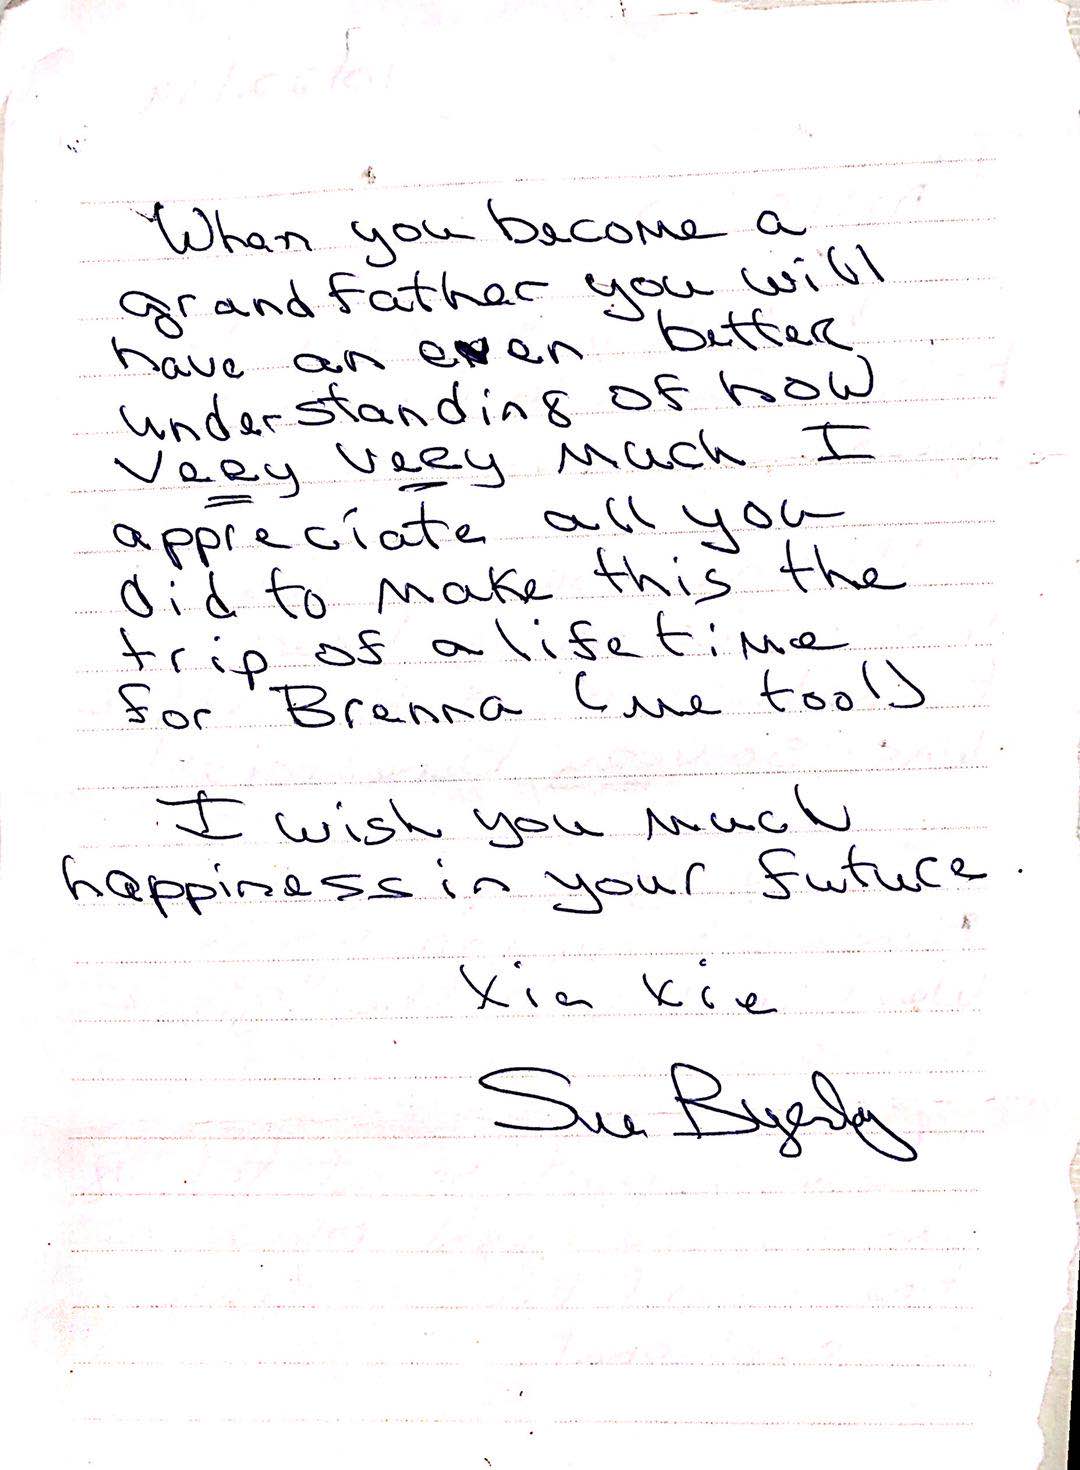 When you become a
grandfather you will
have an even better
understanding of how
very very much I
appreciate all you
did to make this the
trip of a lifetime
for Brenna (me too!)
I wish you much
happiness in your future.
Xie Xie
Sue Byerly